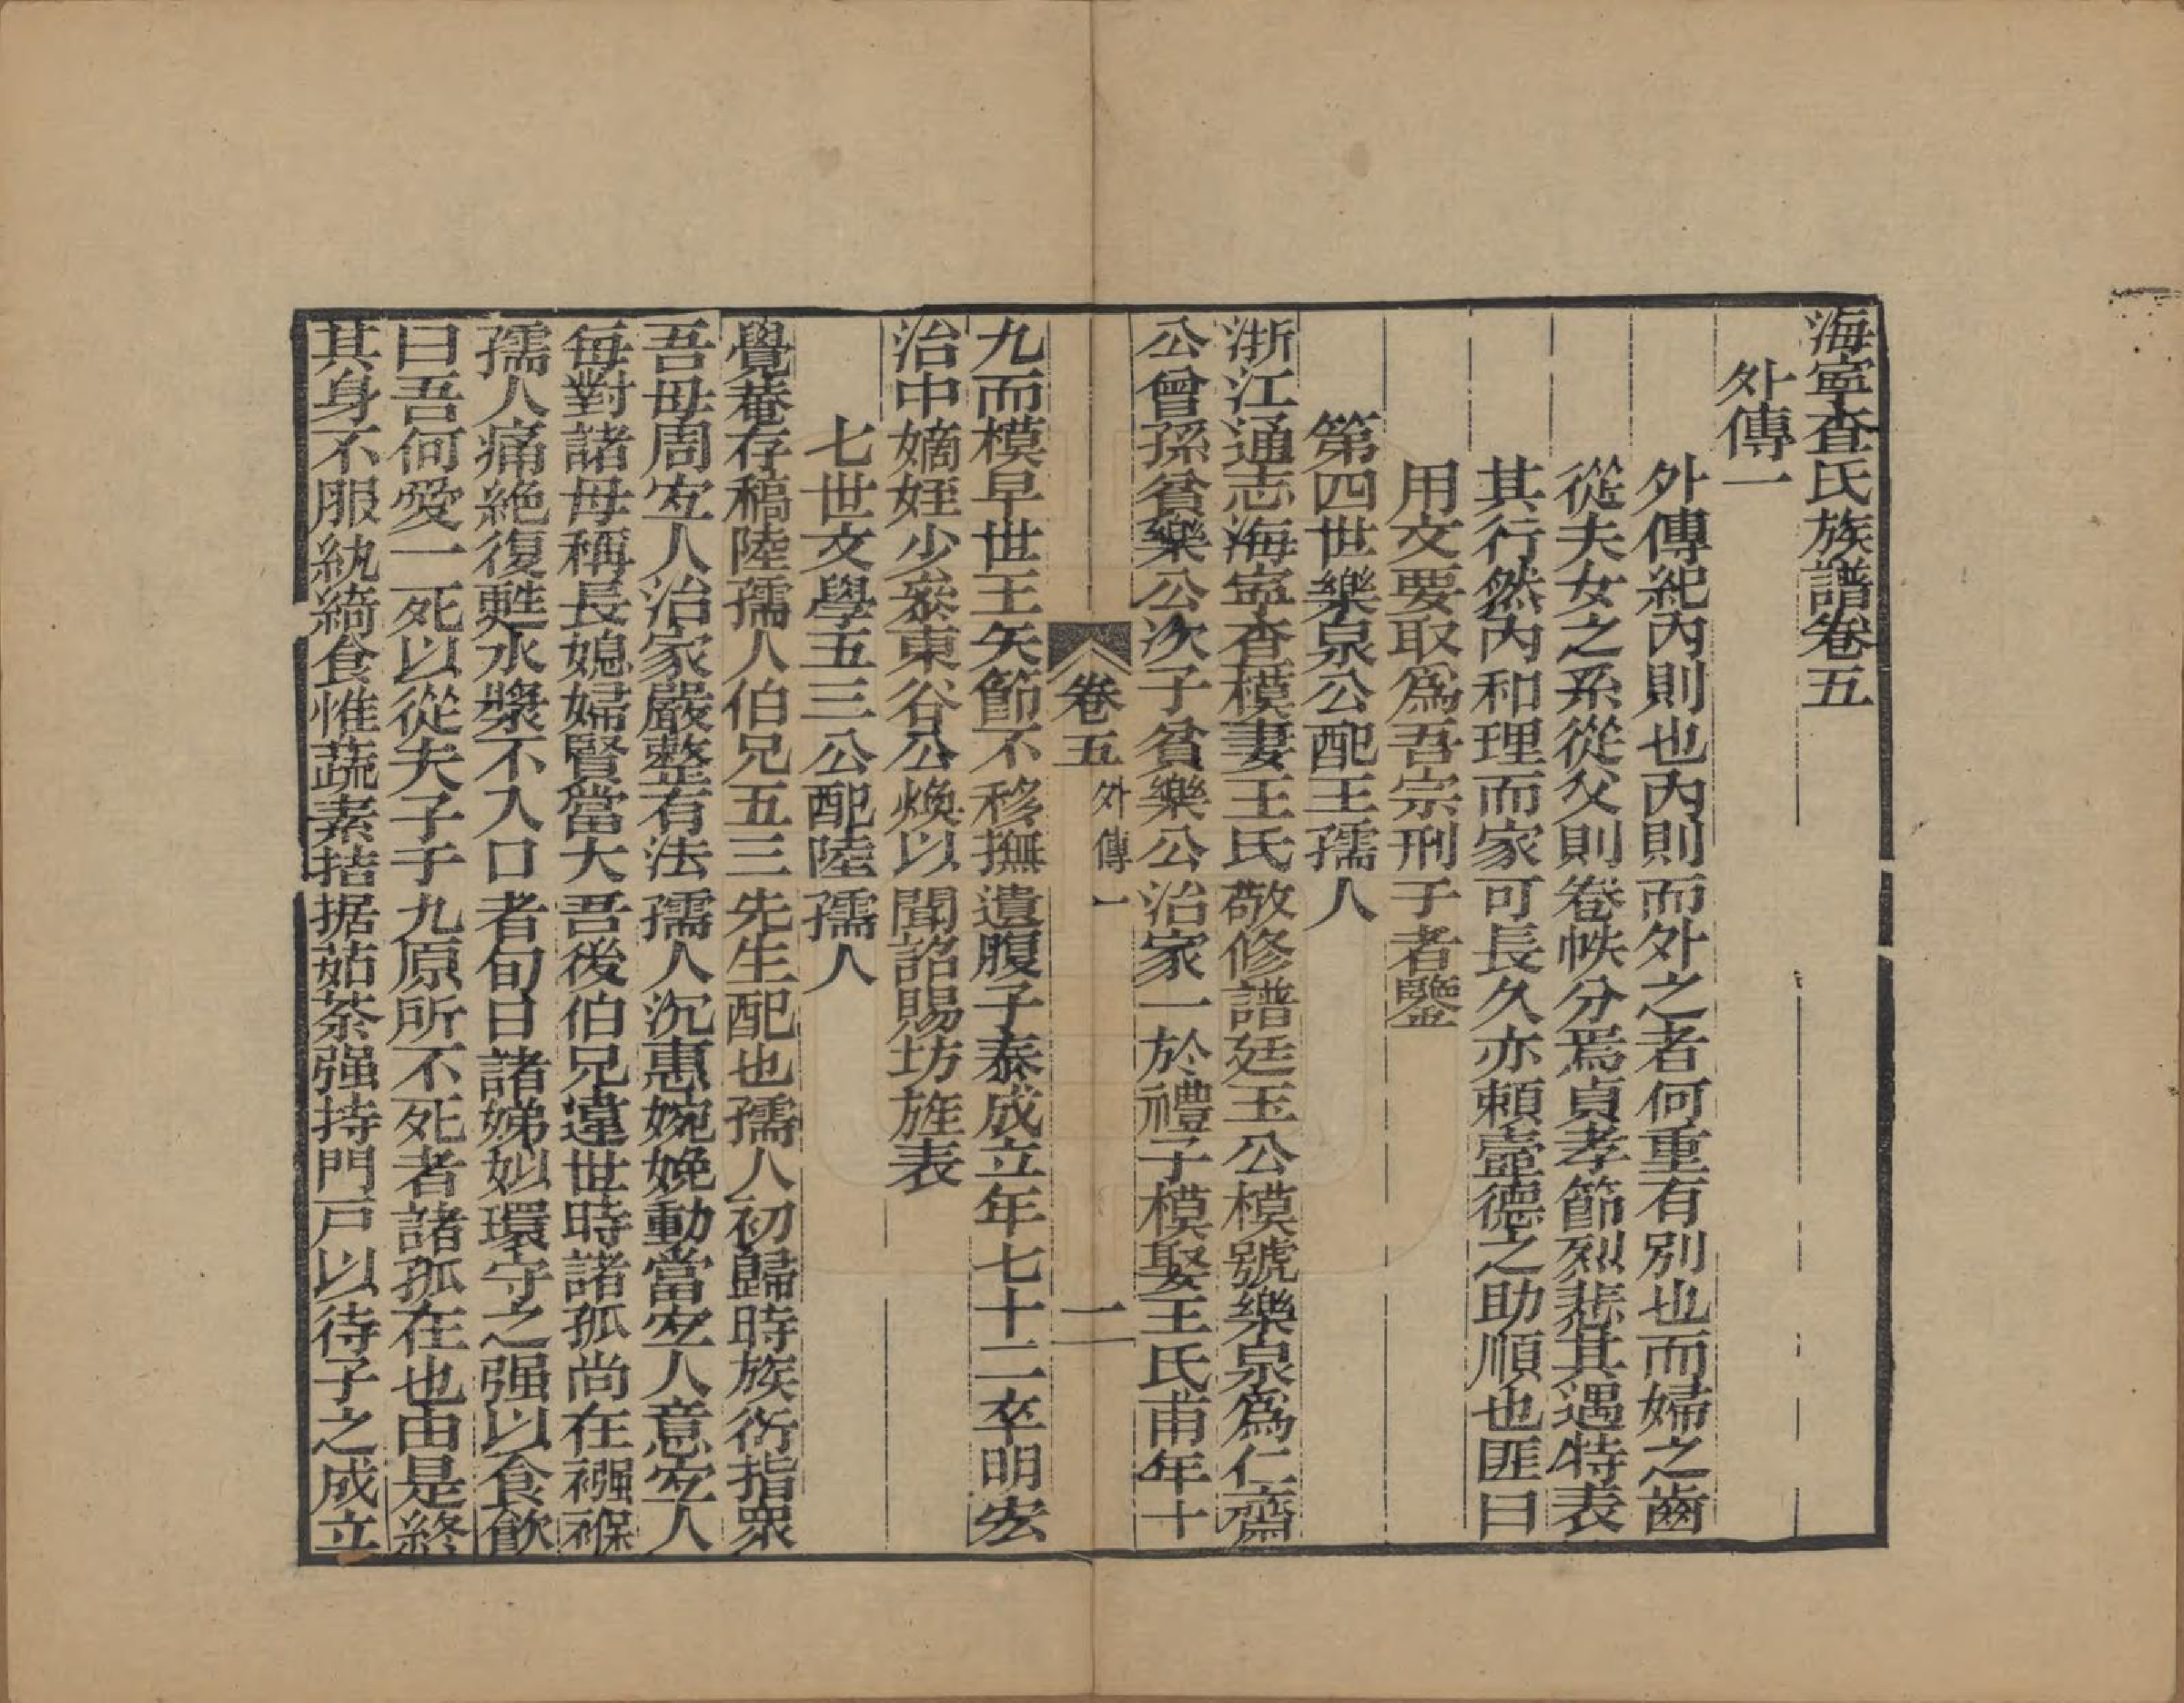 海寧查氏族譜卷五
外傳一
外傳紀內則也內則而外之者何重有別也而婦之齒
從夫女之系從父則卷帙分焉貞孝節烈悲其遇特表
其行然內和理而家可長久亦賴壼德之助順也匪曰
用文要取爲吾宗刑于者鑒
第四世樂泉公配王孺人
浙江通志海寧查模妻王氏敬修譜廷玉公模號樂泉爲仁齋
公曾孫貧樂公次子貧樂公治家一於禮子模娶王氏甫年十
卷五 外傳一 一
九而模早世王矢節不移撫遺腹子泰成立年七十二卒明宏
治中嫡姪少參東谷公煥以聞詔賜坊旌表
七世文學五三公配陸孺人
覺菴存稿陸孺人伯兄五三先生配也孺人初歸時族衍指衆
吾母周宜人治家嚴整有法孺人沉惠婉娩動當宜人意宜人
每對諸母稱長媳婦賢當大吾後伯兄違世時諸孤尚在襁褓
孺人痛絶復甦水漿不入口者旬日諸娣姒環守之强以食飮
曰吾何愛一死以從夫子于九原所不死者諸孤在也由是終
其身不服紈綺食惟蔬素拮据茹荼强持門戸以待子之成立